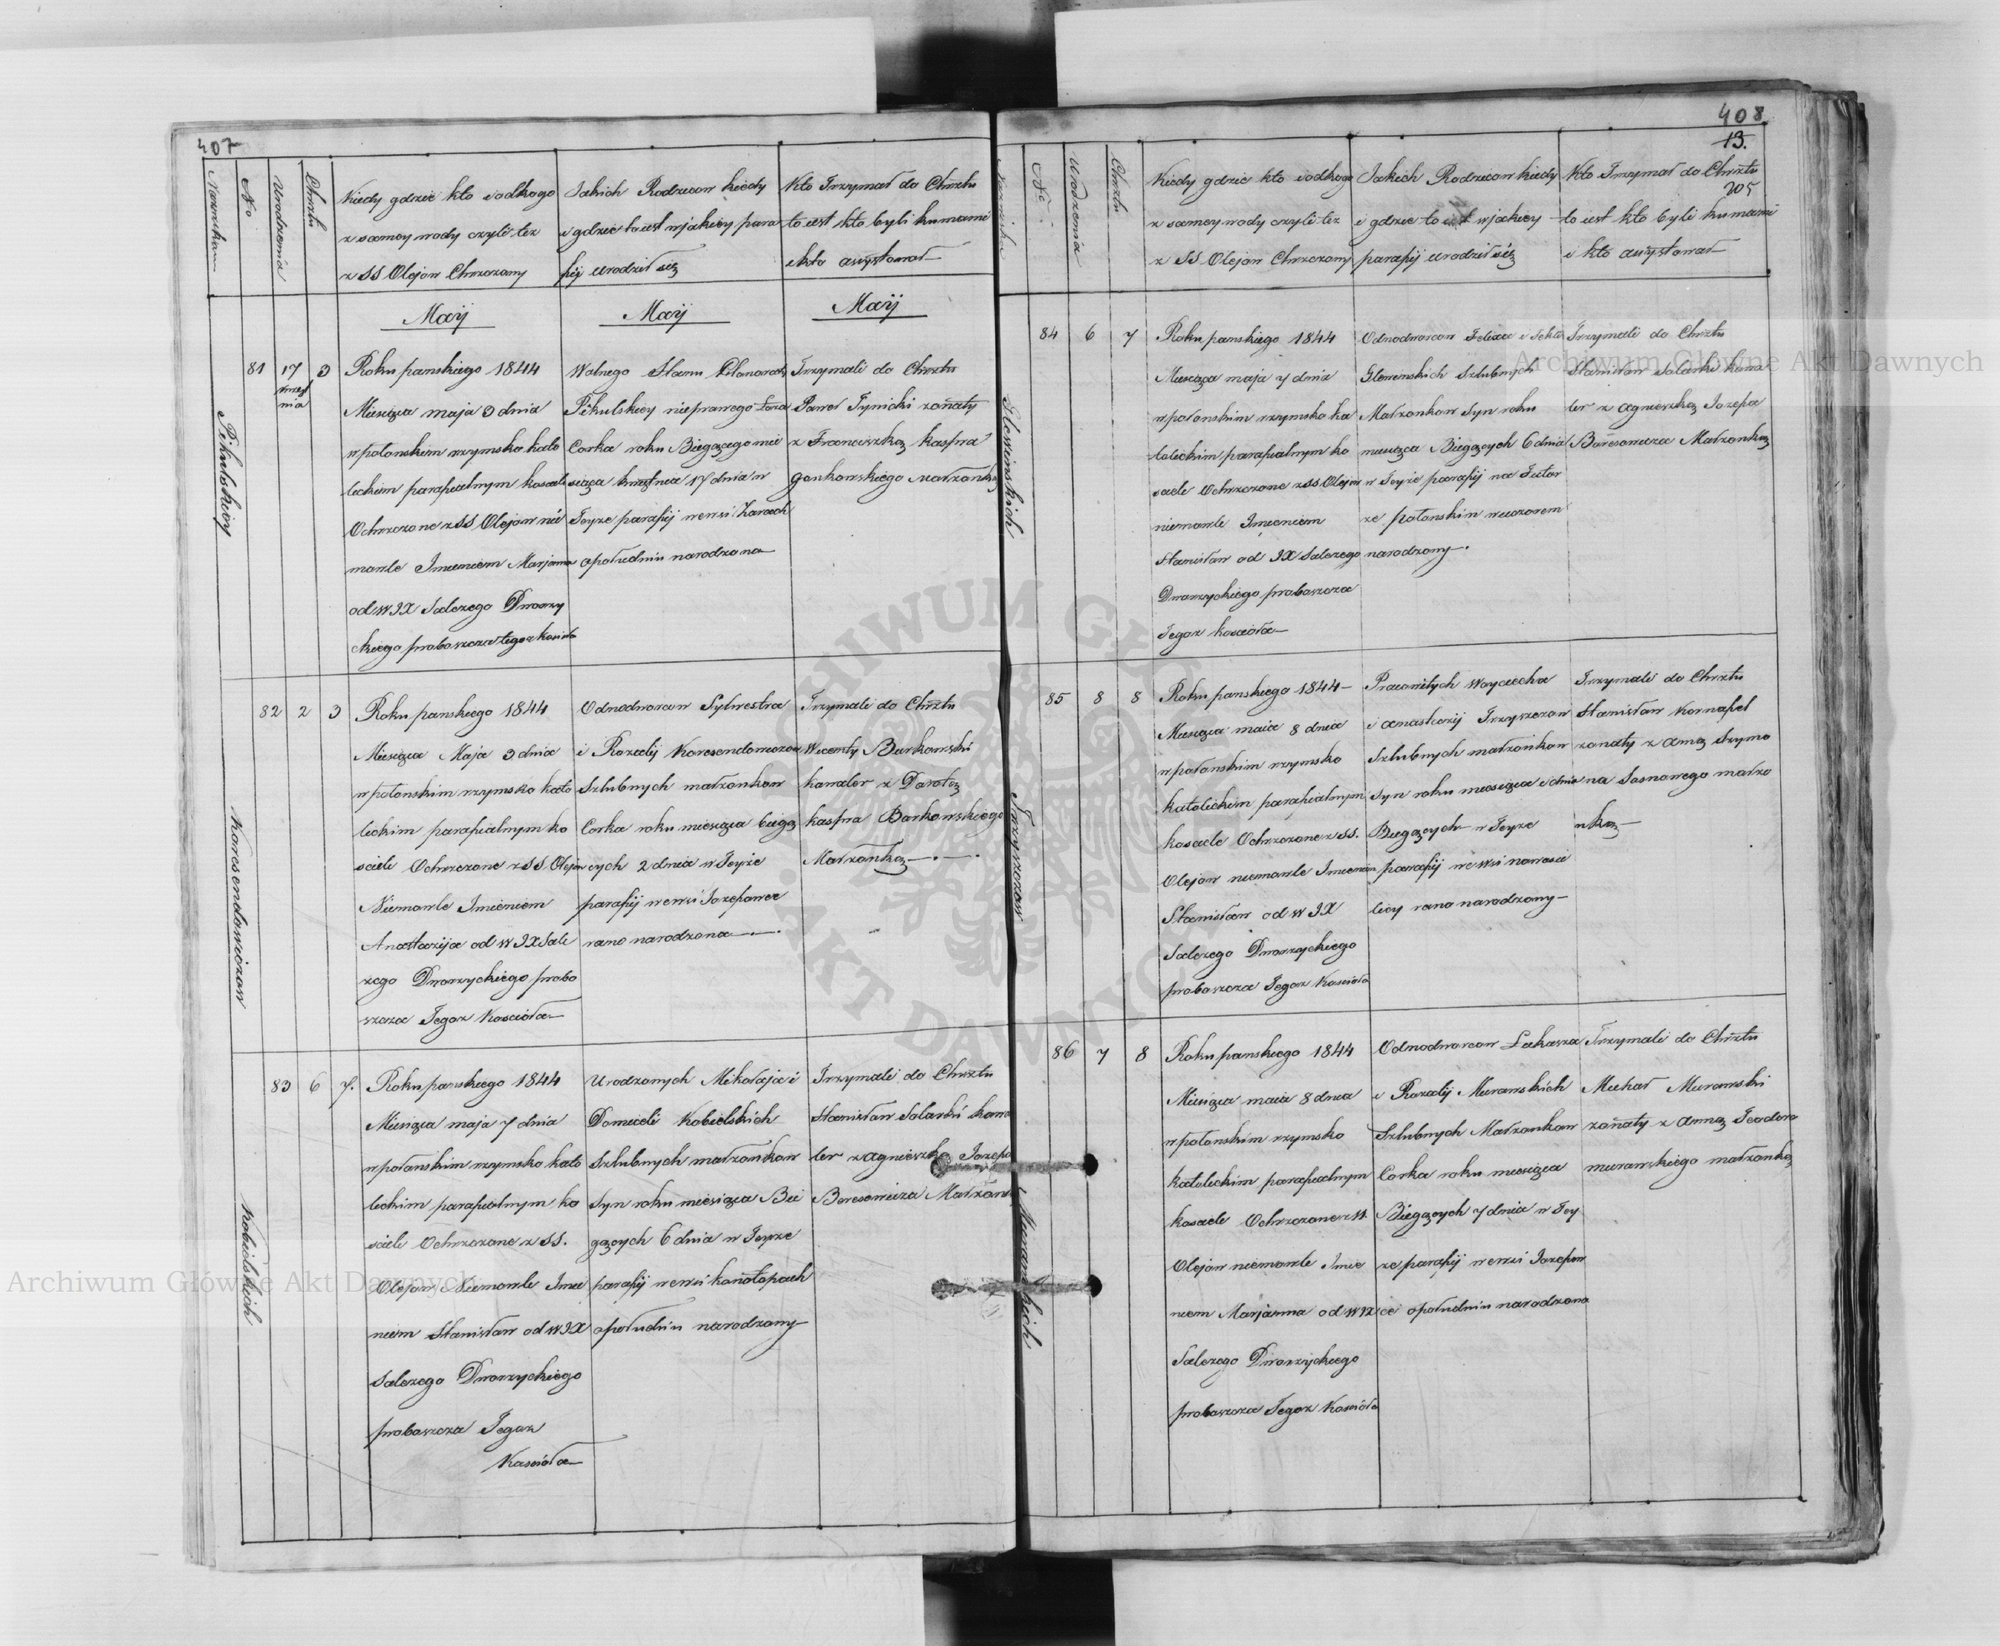 407
Nazwiskam
No
Urodzenia
Chrztu
Kiedy gdzie kto i od kogo
z samey wody czyli też
z SS Olejow Chrzczony
Jakich Rodzicow kiedy
i gdzie to iest w jakiey para
fij urodził się
Kto Trzymał do Chrztu
to iest kto byli kumami
i kto assystował
Maij
Maij
Maij
Pikulskiey
81
17
3
Roku panskiego 1844
Miesiąca maja 3 dnia
w połonskim rzymsko kato
lickim parafialnym kosciele
Ochrzczone z SS Olejow nie
mowle Imieniem Marjanna
od W JX Salezego Dworzy
ckiego proboszcza tegoz kosciola
Wolnego Stanu
Pikulskiey nieprawego Łoza
Corka roku Biegącego mie
siąca kwietnia 17 dnia w
Teyże parafij w wsi
opołudniu narodzona
Trzymali do Chrztu
Paweł Tynicki zonaty
z Franciszką Kaspra
Małżonką
Koresendowiczow
82
2
3
Roku panskiego 1844
Miesiąca Maja 3 dnia
w połonskim rzymsko kato
lickim parafialnym ko
sciele Ochrzczone z SS Olejow
Niemowle Imieniem
Anastazija od W JX Sale
zego Dworzyckiego probo
szcza Tegoz Kosciola
Odnodworcow Sylwestra
i Rozalij Koresendowiczow
Szlubnych małzonkow
Corka roku miesiąca biegą
cych 2 dnia w Teyże
parafij w wsi Jozefowce
rano narodzona
Trzymali do Chrztu
Wicenty Barkowski
kawaler z Dorotą
kaspra Barkowskiego
Małzonką
Kobielskich
83
6
7.
Roku panskiego 1844
Miesiąca maja 7 dnia
w połonskim rzymsko kato
lickim parafialnym ko
sciele Ochrzczone z SS.
Olejow Niemowle Imie
niem Stanisław od W JX
Salezego Dworzyckiego
proboszcza Tegoz
Kosciola
Urodzonych Mikołaja i
Domiceli Kobielskich
Szlubnych małzonkow
Syn roku miesiąca Bie
gących 6 dnia w Teyże
parafij w wsi konotopach
opołudniu narodzony
Trzymali do Chrztu
Stanisław Solarski kawa
ler z agnieszką Jozefa
Boresowicza Małzonk
408
13.
205
No.
Urodzenia
Chrztu
Kiedy gdzie kto i od kogo
z samey wody czyli tez
z SS Olejow Chrzczony
Jakich Rodzicow kiedy
i gdzie to iest w jakiey
parafij urodził się
Kto Trzymał do Chrztu
to iest kto byli kumami
i kto assystował
84
6
7
Roku panskiego 1844
Miesiąca maja 7 dnia
w połonskim rzymsko ka
tolickim parafialnym ko
sciele Ochrzczone z SS. Olejow
niemowle Imieniem
Stanisław od JX Salezego
Dworzyckiego proboszcza
Tegoz kosciola
Odnodworcow Felixa i Tekli
Szlubnych
Małzonkow Syn roku
miesiąca Biegących 6 dnia
w Teyże parafij na Futor
ze połonskim wieczorem
narodzony.
Trzymali do Chrztu
Stanisław Solarski kawa
ler z agnieszką Jozefa
Boresowicza Małzonką
Trzyszczow
85
8
8
Roku panskiego 1844
Miesiąca maia 8 dnia
w połonskim rzymsko
katolickim parafialnym
kosciele Ochrzczone z SS.
Olejow niemowle Imieniem
Stanisław od W JX
Salezego Dworzyckiego
proboszcza Tegoz Kosciola
Pracowitych Woyciecha
i anastazij Trzyszczow
Szlubnych małzonkow
Syn roku miesiąca i dnia
Biegących w Teyże
parafij w wsi nowosie
licy rano narodzony
Trzymali do Chrztu
Stanisław Kornafel
zonaty z anną Szymo
na Sosnowego małzo
nką
Murawskich
86
7
8
Roku panskiego 1844
Miesiąca maia 8 dnia
w połonskim rzymsko
katolickim parafialnym
kosciele Ochrzczone z SS.
Olejow niemowle Imie
niem Marjanna od W JX
Salezego Dworzyckiego
proboszcza Tegoz Kosciola
Odnodworcow Łukasza
i Rozalij Murawskich
Szlubnych Małzonkow
Corka roku miesiąca
Biegących 7 dnia w Tey
ze parafij w wsi Jozefow
ce opołudniu narodzona
Trzymali do Chrztu
Michał Murawski
zonaty z Anną Teodora
murawskiego małzonką
Archiwum Główne Akt Dawnych
Archiwum Główne Akt Dawnych